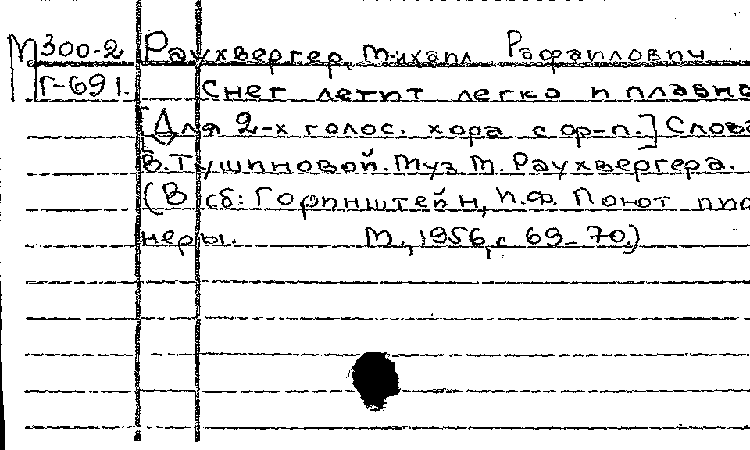 М300-2 Раухвергер, Михаил Рафаилович
Г-691. Снег летит легко и плавно
[Для 2-х голос. хора с ф-п.] Слова
В. Тушновой. Муз. М. Раухвергера.
(В сб: Горинштейн, И.Ф. Поют пио-
неры. М., 1956, с 69-70.)